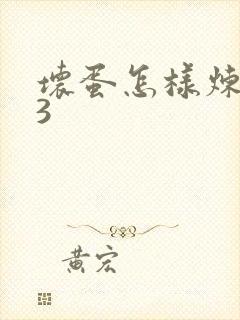 壞蛋怎樣煉
3
黃宏